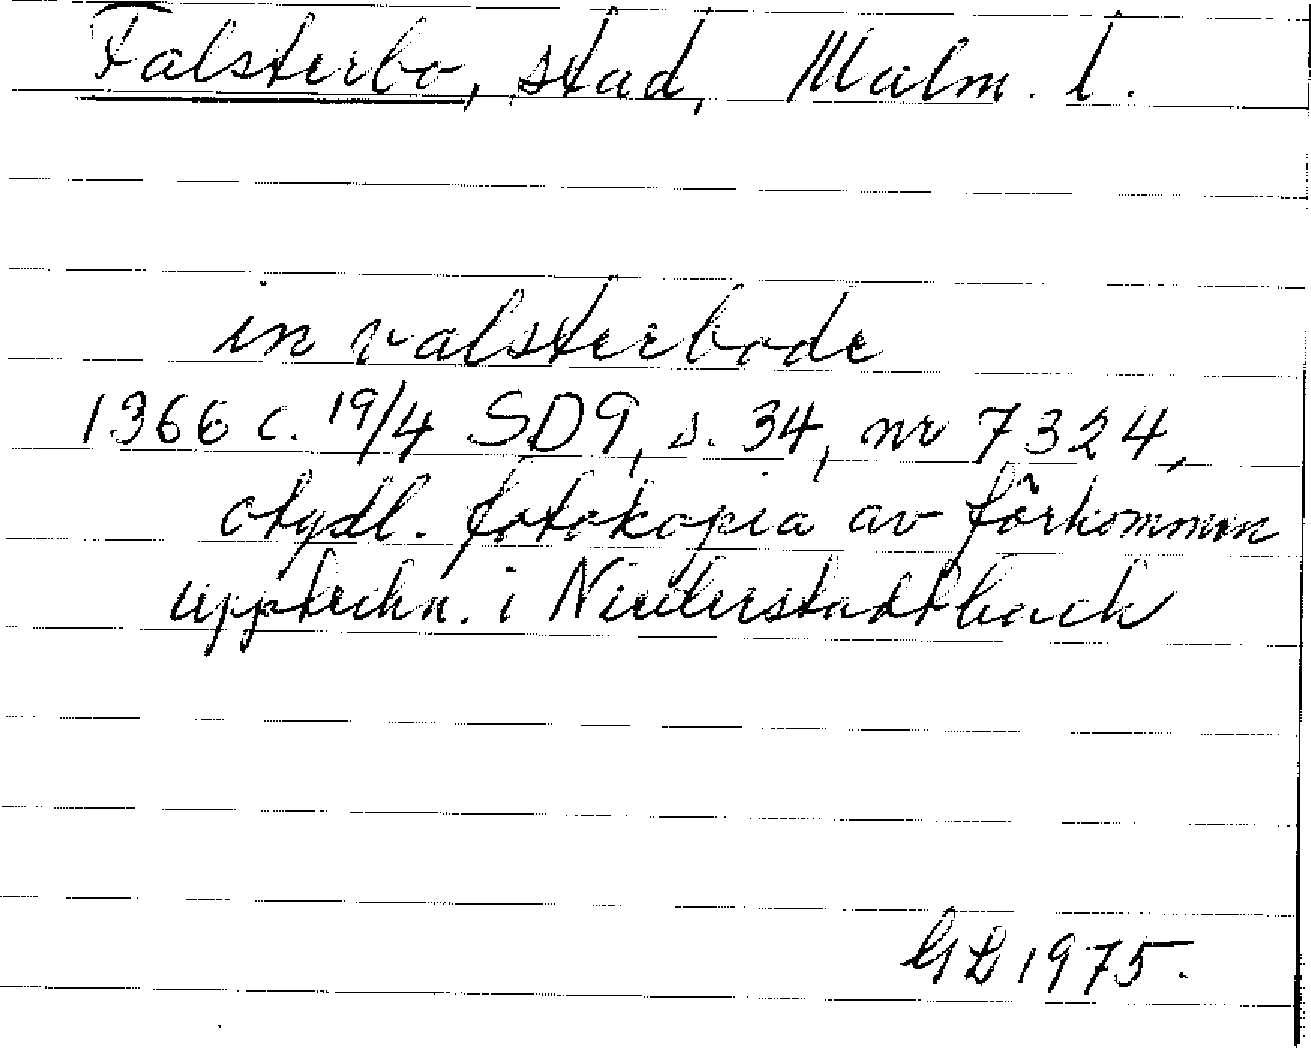 Falsterbo, stad, Malm. l.
in valsterbode
1366 c. 19/4 SD9, s. 34, nr 7324,
otydl. fotokopia av förkommen
uppteckn. i Niederstadtbach
GL 1975.